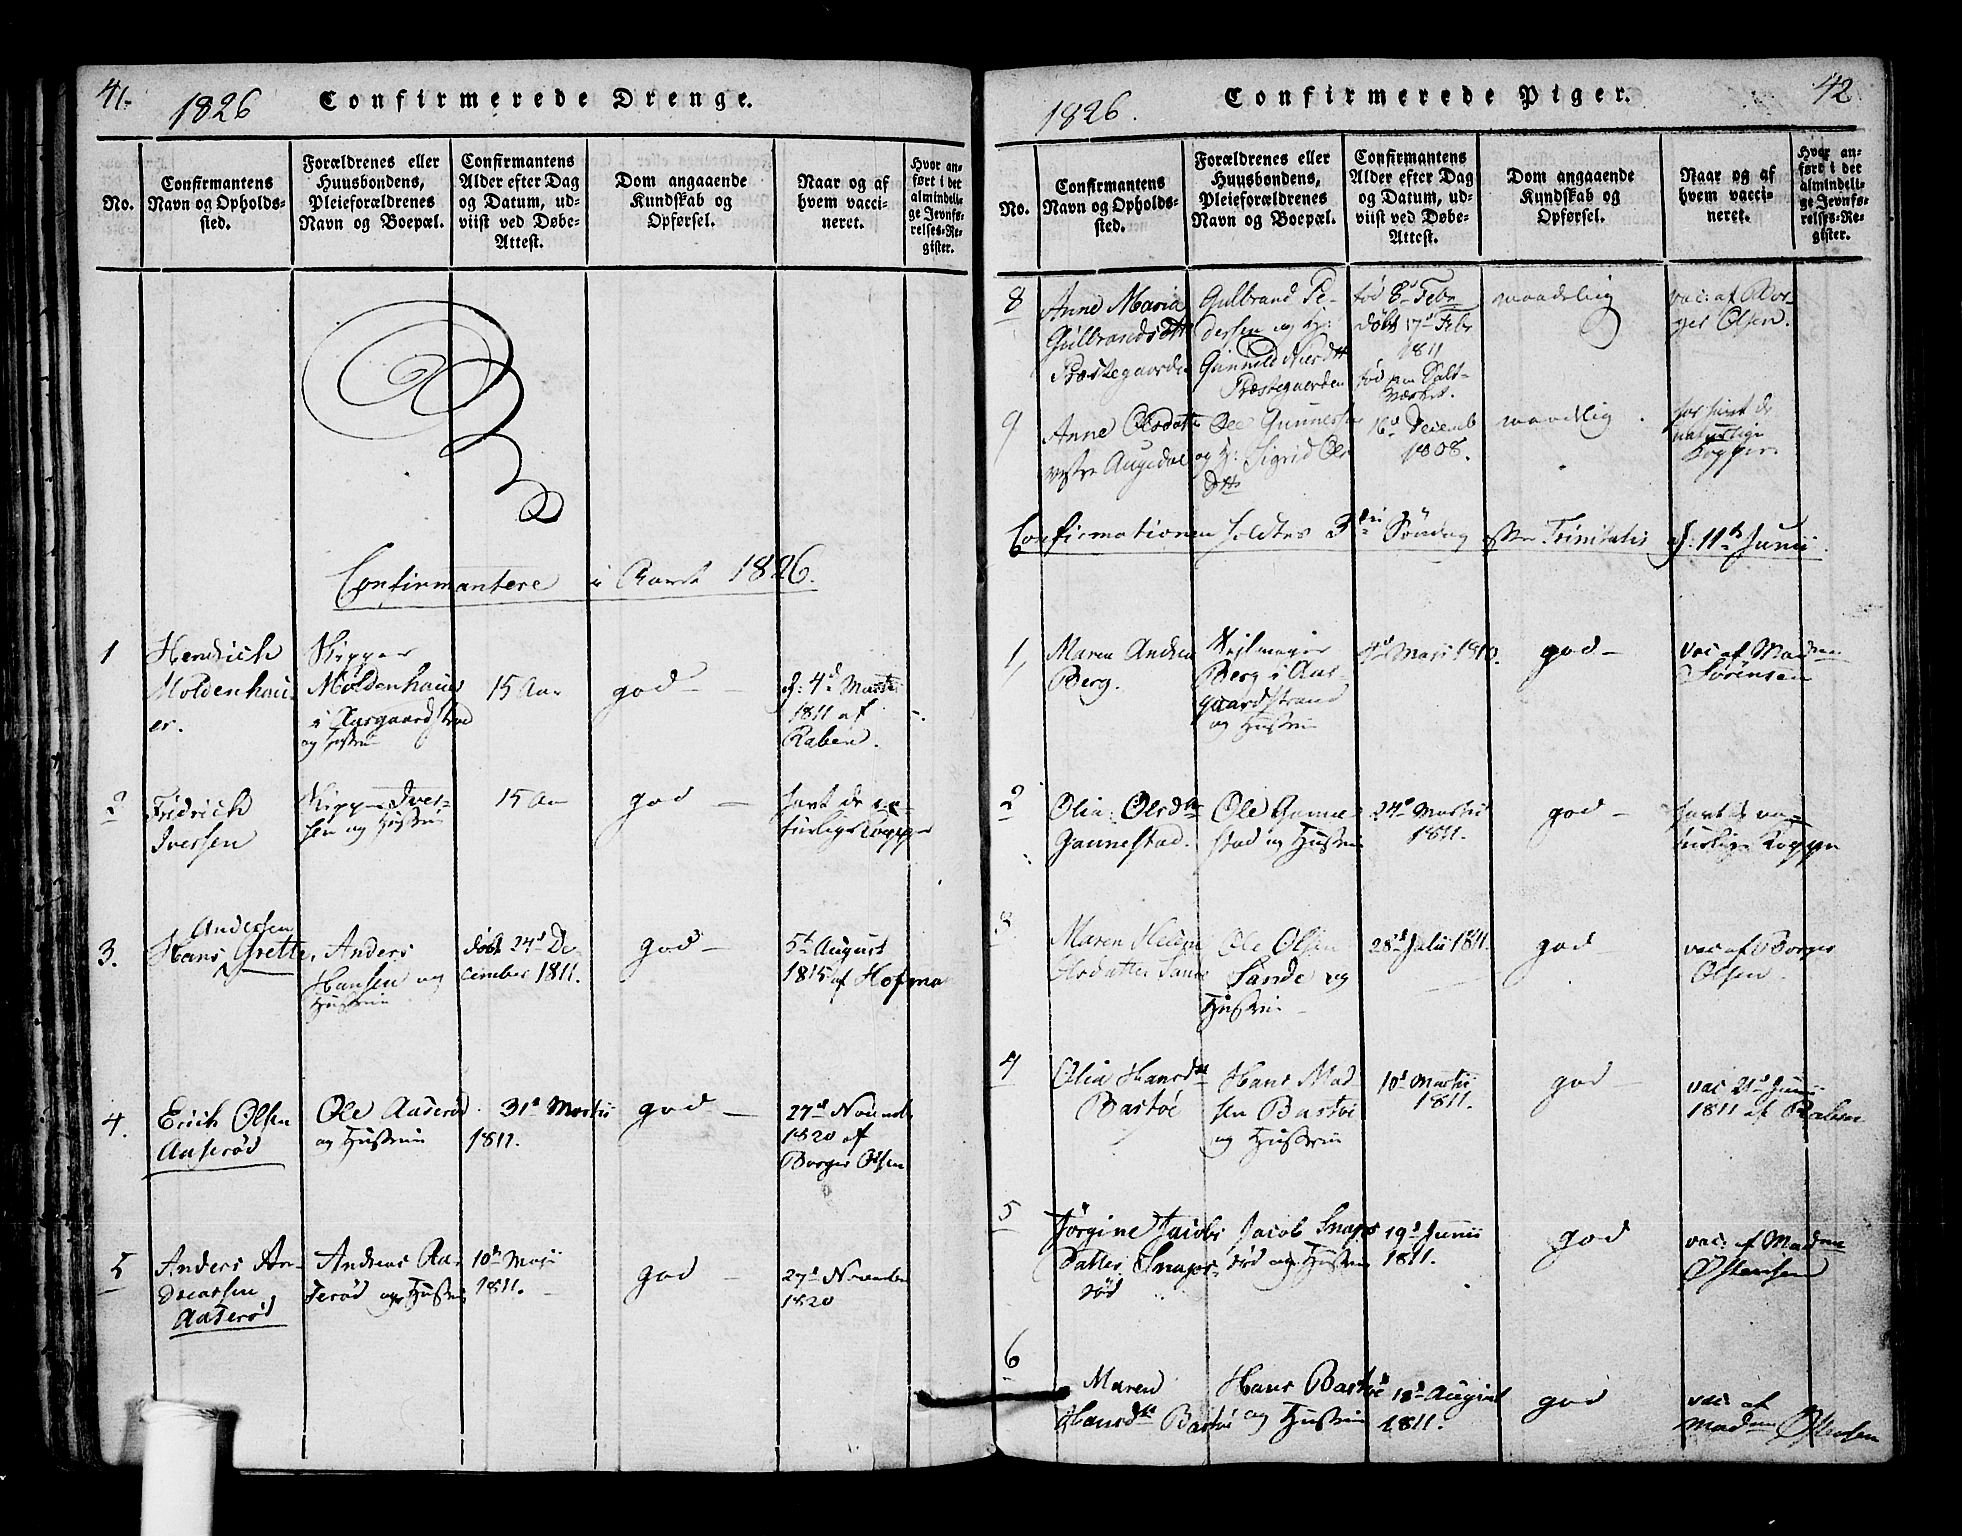 41.
1826
Confirmerede Drenge.
No.
Confirmantens
Navn og Opholds-
sted.
Forældrenes eller
Huusbondens,
Pleieforældrenes
Navn og Boepæl.
Confirmantens
Alder efter Dag
og Datum, ud-
viist ved Døbe-
Attest.
Dom angaaende
Kundskab og
Opførsel.
Naar og af
hvem vacci-
neret.
Hvor an-
ført i det
almindeli-
ge Jevnfø-
relses-Re-
gister.
Confirmantere i Aaret 1826.
1
Hendrich
Moldenhau-
er.
Skipper
Moldenhauer
i Aasgaardstrand
og Hustrue
15 Aar
god -
d: 4d Martii
1811 af
Raben.
2
Fridrich
Iversen
Skipper Iver-
sen og Hustrue
15 Aar
god -
havt de na-
turlige Kopper
3.
Andersen
Hans Grette,
Anders
Hansen og
Hustrue
døbt 24d De-
cember 1811.
god -
5t August
1815 af Hofma
4.
Erich Olsen
Aaserød
Ole Aaserød
og Hustrue
31d Martii
1811.
god -
27d Novemb.
1820 af
Borger Olsen
5
Anders An-
dreassen
Aaserød
Andreas Aa-
serød og Hustrue
10d Maji
1811.
god -
27d November
1820
42
1826.
Confirmerede Piger.
No.
Confirmantens
Navn og Opholds-
sted.
Forældrenes eller
Huusbondens,
Pleieforældrenes
Navn og Boepæl.
Confirmantens
Alder efter Dag
og Datum, ud-
viist ved Døbe-
Attest.
Dom angaaende
Kundskab og
Opførsel.
Naar og af
hvem vacci-
neret.
Hvor an-
ført i det
almindeli-
ge Jevnfø-
relses-Re-
gister.
8
Anne Maria
Gulbrandsdtt
Præstegaarden
Gulbrand Pe-
dersen og H:
Gunnild
Præstegaarden
fød 8d Febr
døbt 17d Febr
1811
fød paa Salt-
Værket.
maadelig
vac: af Bor-
ger Olsen.
9
Anne Olsdatter
vestre Augedal
Ole Gunnersen
og H: Sigrid Ols
dtt
16d Decemb
1808.
maadelig
har havt de
naturlige
Kopper
Confirmationen holdtes 3die Søndag efter Trinitatis d: 11te Junii.
1,
Maren Andrea
Berg.
Berg i Aas-
gaardstrand
og Hustrue
9d Maji 1810.
god -
vac af Madme
Sørensen
2
Olia Olsdtr
Gannestad.
Ole Ganne-
stad og Hustrue
24d Martii
1811.
god -
havt de na-
turlige Kopper
3
Maren Helene
Olsdatter Sande
Ole Olsen
Sande og
Hustrue
28d Julii 1811.
god -
vac af Borger
Olsen.
4
Olia Hansdtt
Bastøe
Hans Mad
sen Bastøe
og Hustrue
10d Martii
1811.
god
vac 21d Junii
1811 af Raben
5
Jørgine Jacobs
Datter Snapsrød
Jacob Snaps
rød og Hustrue
19d Junii
1811.
god
vac: af Madme
Østensen
6
Maren
Hansdtt Bastøe
Hans Bastøe
og Hustrue
18d August
1811.
god
vac: af
Madme Østensen